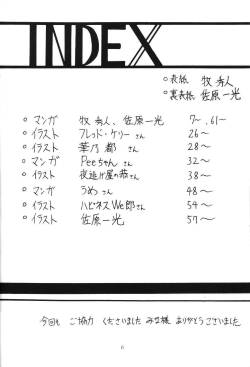 INDEX
○表紙 牧秀人
○裏表紙 佐原一光
○マンガ 牧秀人、佐原一光 7〜,61〜
○イラスト フレッド・ケリーさん 26〜
○イラスト 華乃都さん 28〜
○マンガ Peeちゃん 32〜
○イラスト 夜逃げ屋の茄さん 38〜
○マンガ うめっさん 48〜
○イラスト ハピネスWe郎さん 54〜
○イラスト 佐原一光 57〜
今回も ご協力 くださいました みな様 ありがとう ございました
6